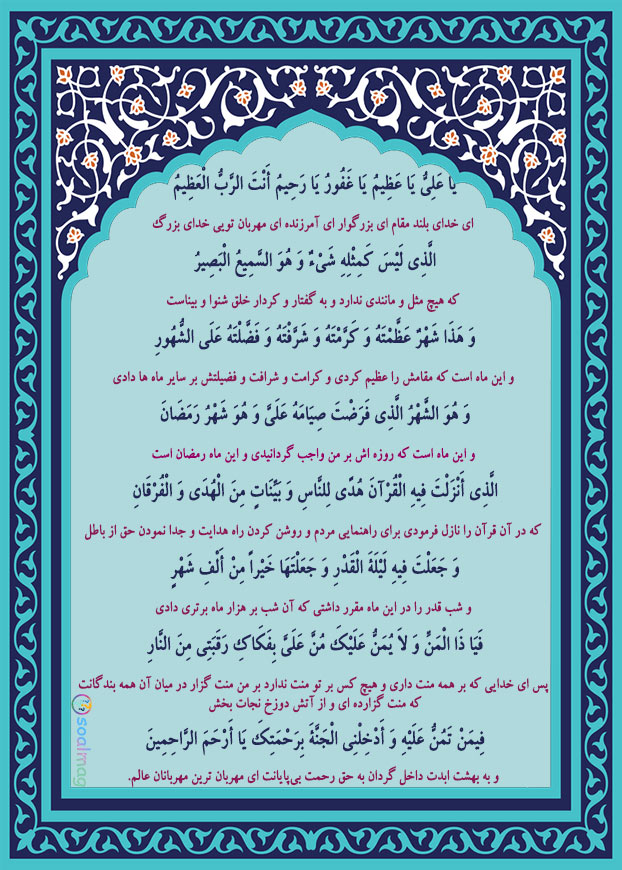 يا عَلِىُّ يَا عَظِيمُ يَا غَفُورُ يَا رَحِيمُ أَنْتَ الرَّبُّ الْعَظِيمُ
ای خدای بلند مقام ای بزرگوار ای آمرزنده ای مهربان تویی خدای بزرگ
الَّذِى لَيْسَ كَمِثْلِهِ شَىْءٌ وَ هُوَ السَّمِيعُ الْبَصِيرُ
که هیچ مثل و مانندی ندارد و به گفتار و کردار خلق شنوا و بیناست
وَ هَذَا شَهْرٌ عَظَّمْتَهُ وَ كَرَّمْتَهُ وَ شَرَّفْتَهُ وَ فَضَّلْتَهُ عَلَى الشُّهُورِ
و این ماه است که مقامش را عظیم کردی و کرامت و شرافت و فضیلتش بر سایر ماه ها دادی
وَ هُوَ الشَّهْرُ الَّذِى فَرَضْتَ صِيَامَهُ عَلَىَّ وَ هُوَ شَهْرُ رَمَضَانَ
و این ماه است که روزه اش بر من واجب گردانیدی و این ماه رمضان است
الَّذِى أَنْزَلْتَ فِيهِ الْقُرْآنَ هُدًى لِلنَّاسِ وَ بَيِّنَاتٍ مِنَ الْهُدَى وَ الْفُرْقَانِ
که در آن قرآن را نازل فرمودی برای راهنمایی مردم و روشن کردن راه هدایت و جدا نمودن حق از باطل
وَ جَعَلْتَ فِيهِ لَيْلَةَ الْقَدْرِ وَ جَعَلْتَهَا خَيْراً مِنْ أَلْفِ شَهْرٍ
و شب قدر را در این ماه مقرر داشتی که آن شب بر هزار ماه برتری دادی
فَيَا ذَا الْمَنِّ وَ لاَ يُمَنُّ عَلَيْكَ مُنَّ عَلَىَّ بِفَكَاكِ رَقَبَتِى مِنَ النَّارِ
پس ای خدایی که بر همه منت داری و هیچ کس بر تو منت ندارد بر من منت گزار در میان آن همه بندگانت
که منت گزارده ای و از آتش دوزخ نجات بخش
فِيمَنْ تَمُنُّ عَلَيْهِ وَ أَدْخِلْنِى الْجَنَّةَ بِرَحْمَتِكَ يَا أَرْحَمَ الرَّاحِمِينَ
و به بهشت ابدت داخل گردان به حق رحمت بی‌پایانت ای مهربان ترین مهربانان عالم.
soalmag